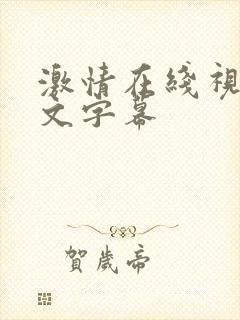 激情在綫視
文字幕
賀歲帝